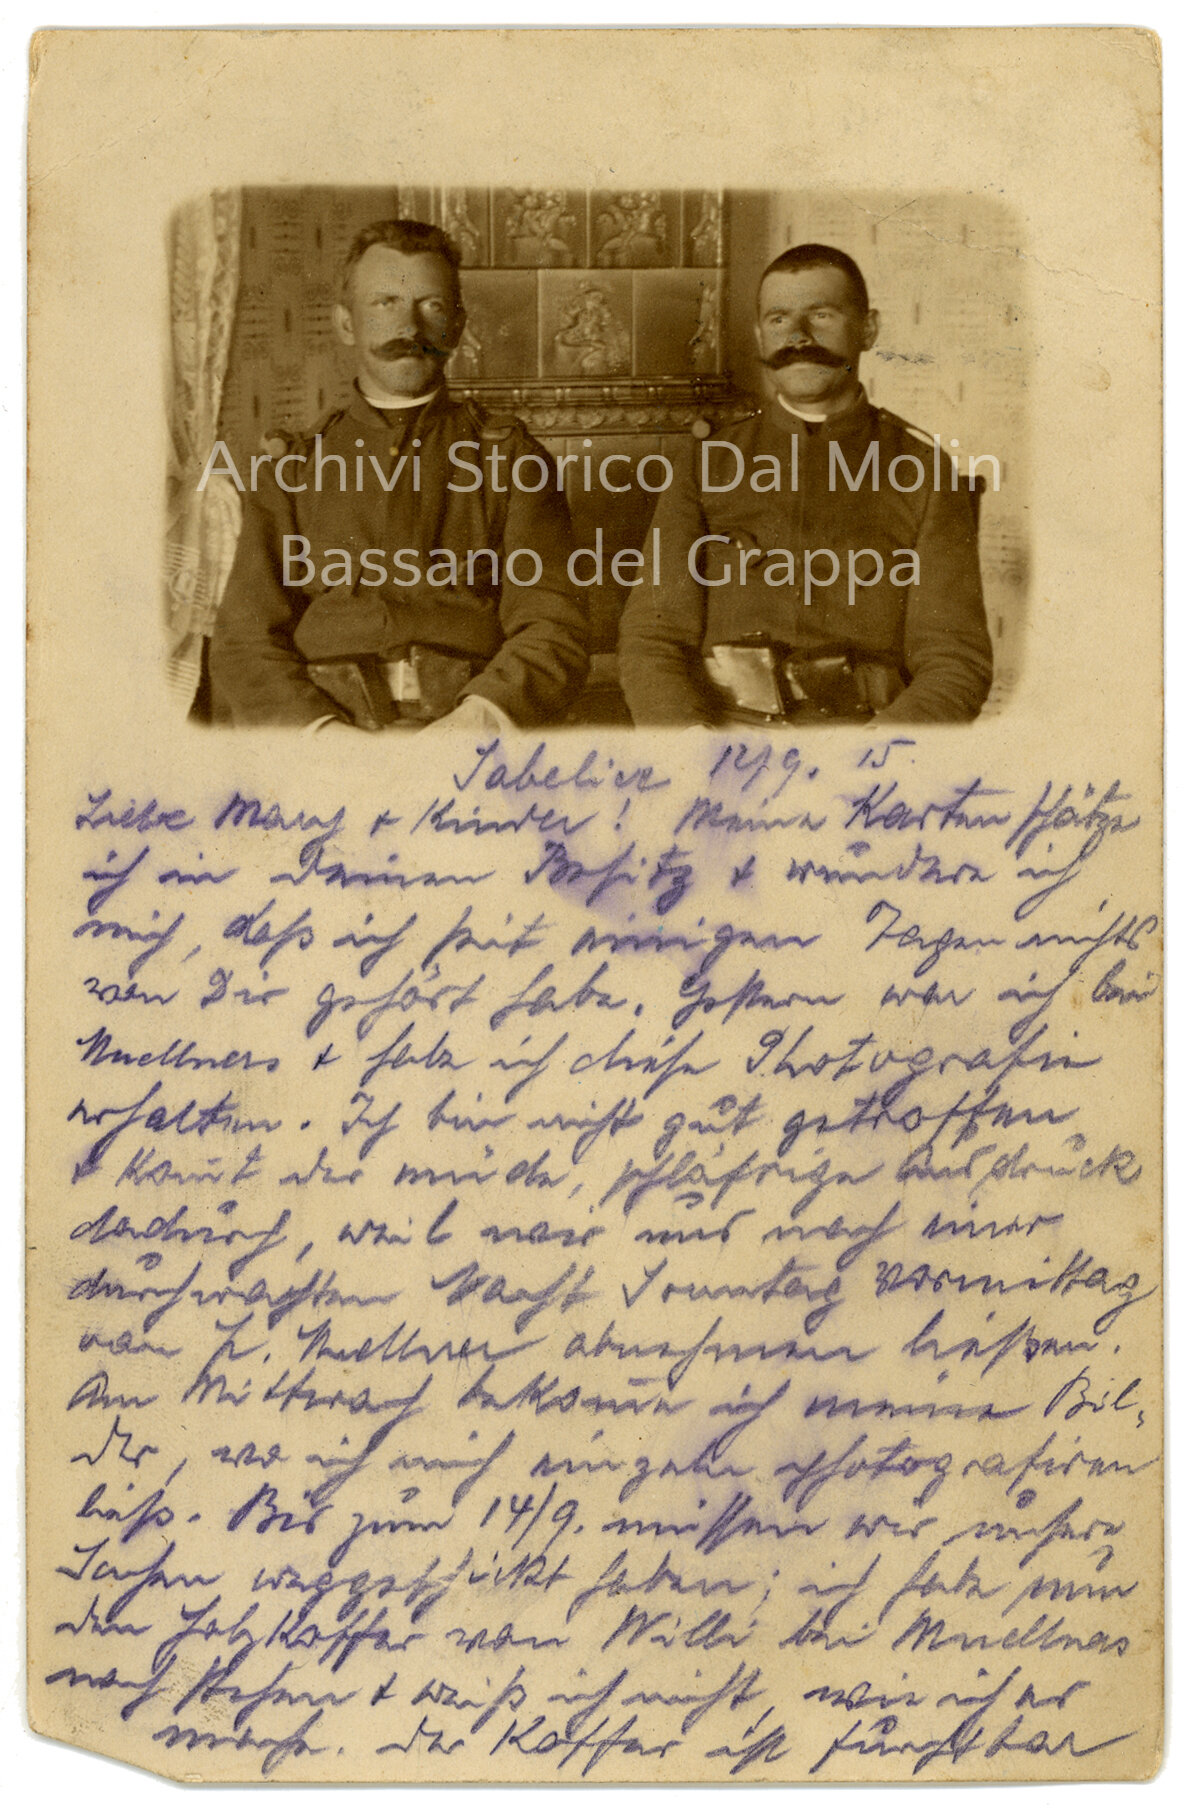 Archivi Storico Dal Molin
Bassano del Grappa
12/9. 15.
Liebe Mary + Kinder! Meine Karten schätze
ich in Deinen Besitz + wundere ich
mich, daß ich seit einigen Tagen nichts
von Dir gehört habe. Gestern war ich bei
Muellners + habe ich diese Photografie
erhalten. Ich bin nicht gut getroffen
+ kom̅t der müde, schläfrige Ausdruck
dadurch, weil wir uns nach einer
durchwachten Nacht Sonntag Vormittag
von H. Muellner abnehmen ließen.
Am Mittwoch bekom̅e ich meine Bil-
der, wo ich mich einzeln photografiren
ließ. Bis zum 14/9. müssen wir unsere
Sachen weggeschickt haben; ich habe nun
den Holzkoffer von Willi bei Muellners
noch stehen + weiß ich nicht, wie ich es
mache. Der Koffer ist furchtbar